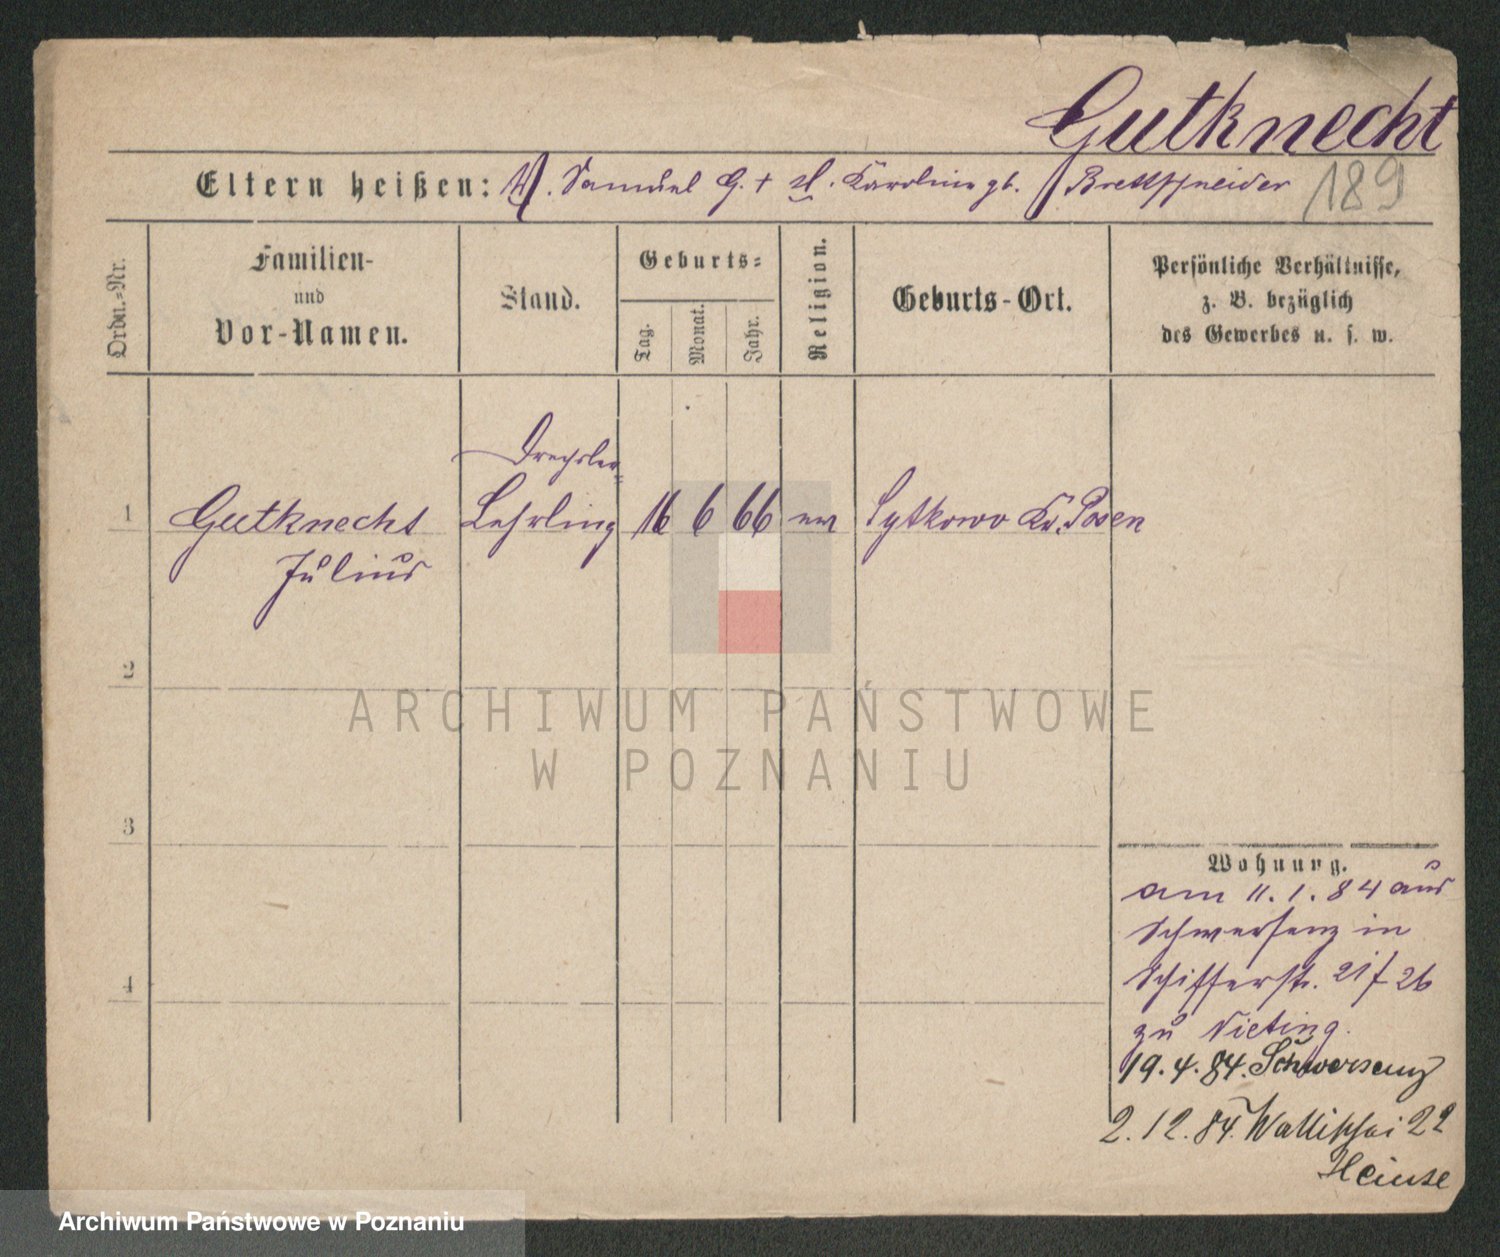 Gutknecht
Eltern heißen: V. Samuel G. + M. Karoline gb. Brettschneider 189
Ordn.=Nr.
Familien-
und
Vor-Namen.
Stand.
Geburts=
Tag.
Monat.
Jahr.
Religion.
Geburts-Ort.
Persönliche Verhältnisse,
z. B. bezüglich
des Gewerbes u. s. w.
Drechsler-
1 Gutknecht Lehrling 16 6 66 ev Sytkowo Kr. Posen
Julius
2
3
4
Wohnung.
am 11.1.84 aus
Schwersenz in
Schifferstr. 21 26
zu Vieting.
19.4.84. Schwersenz
2.12.84. Wallischei 22
Heinse
ARCHIWUM PAŃSTWOWE
W POZNANIU
Archiwum Państwowe w Poznaniu